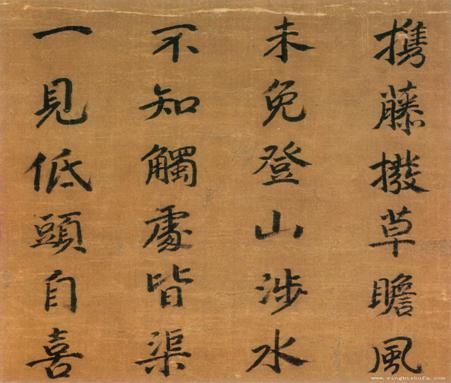 攜藤撥草瞻風
未免登山涉水
不知觸處皆渠
一見低頭自喜
www.xingbishufa.com